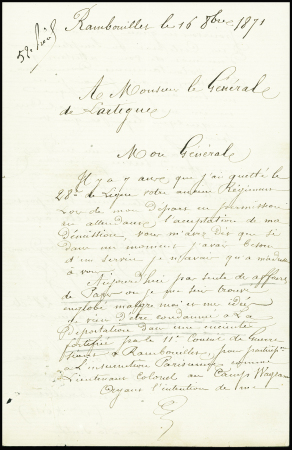 Rambouillet le 16 8bre 1871
A Monsieur le Général
de Lartigue
Mon Général
Il y a 7 ans que j'ai quitté le
28e de Ligne votre ancien Régiment
lors de mon départ en permission
en attendant l'acceptation de ma
démission, vous m'avez dit que si
dans un moment j'avais besoin
d'un service je n'avais qu'a m'adresser
à vous.
Aujourd'hui par suite de affaires
de Paris ou je me suis trouvé
englobé malgré moi et
je viens d'être condamné a La
Déportation dans une enceinte
fortifiée par le 11e Conseil de Guerre
à Rambouillet, pour
a L'insurrection Parisienne comme
Lieutenant Colonel au Camp
Ayant l'intention de me